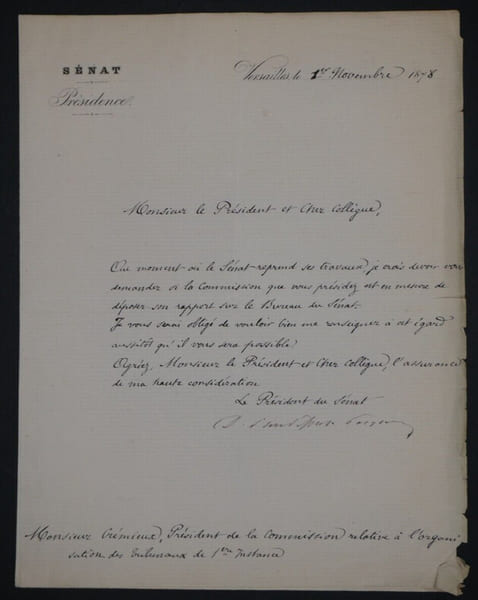 SÉNAT
Présidence.
Versailles, le 1er Novembre 1878
Monsieur le Président et Cher Collègue,
Au moment où le Sénat reprend ses travaux, je crois devoir vous
demander si la Commission que vous présidez est en mesure de
déposer son rapport sur le Bureau du Sénat.
Je vous serai obligé de vouloir bien me renseigner à cet égard
aussitôt qu'il vous sera possible
Agréez, Monsieur le Président et Cher Collègue, l'assurance
de ma haute considération
Le Président du Sénat
Monsieur Crémieux, Président de la Commission relative à l'organi
sation des tribunaux de 1ère Instance